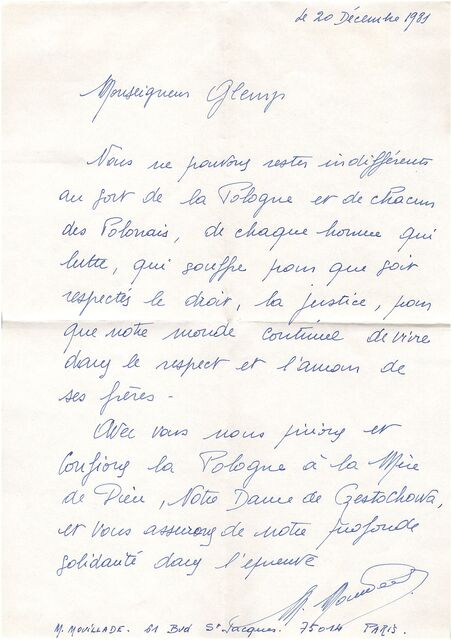 le 20 Décembre 1981
Monseigneur Glemp
Nous ne pouvons rester indifférents
au sort de la Pologne et de chacun
des Polonais, de chaque homme qui
lutte, qui souffre pour que soit
respectés le droit, la justice, pour
que notre monde continue de vivre
dans le respect et l'amour de
ses frères -
Avec vous nous prions et
confions la Pologne à la Mère
de Dieu, Notre Dame de Çestochowa,
et vous assurons de notre profonde
solidarité dans l'épreuve
M. MOUILLADE. 61 Bvd St Jacques. 75014 PARIS.